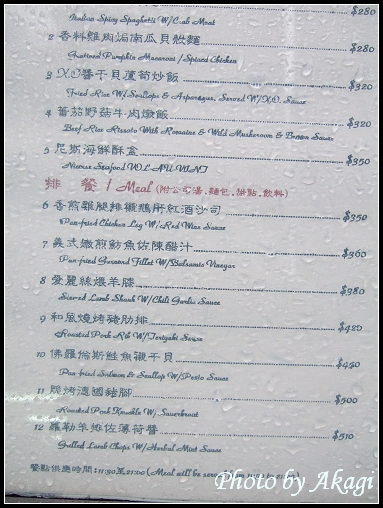 Italian Spicy Spaghetti W/Crab Meat $280
2 香料雞肉焗南瓜貝殼麵 $280
Gratined Pumpkin Macaroni / Spiced Chicken
3 X.O醬干貝蘆筍炒飯 $320
Fried Rice W/Scallops & Asparagus, Served W/X.O. Sauce
4 蕃茄野菇牛肉燉飯 $320
Beef Rice Rissoto With Romaine & Wild Mushroom &
5 尼斯海鮮酥盒 $350
Seafood VOL-AU-VENT
排 餐 / Meal (附公司湯.麵包.甜點.飲料)
6 香煎雞腿排襯鵝肝紅酒沙司 $350
Pan-fried Chicken Leg W/Red Wine Sauce
7 義式嫩煎魴魚佐陳醋汁 $360
Pan-fried Gurnard Fillet W/Balsamic Vinegar
8 愛麗絲煨羊膝 $380
Lamb Shank W/Chili Garlic Sauce
9 和風燒烤豬肋排 $420
Roasted Pork Rib W/Teriyaki Sauce
10 佛羅倫斯鮭魚襯干貝 $450
Pan-fried Salmon & Scallop W/Pesto Sauce
11 脆烤德國豬腳 $500
Roasted Pork Knuckle W/ Sauerkraut
12 羅勒羊排佐薄荷醬 $510
Grilled Lamb Chops W/Herbal Mint Sauce
餐點供應時間:11:30至21:00 (Meal will be
Photo by Akagi